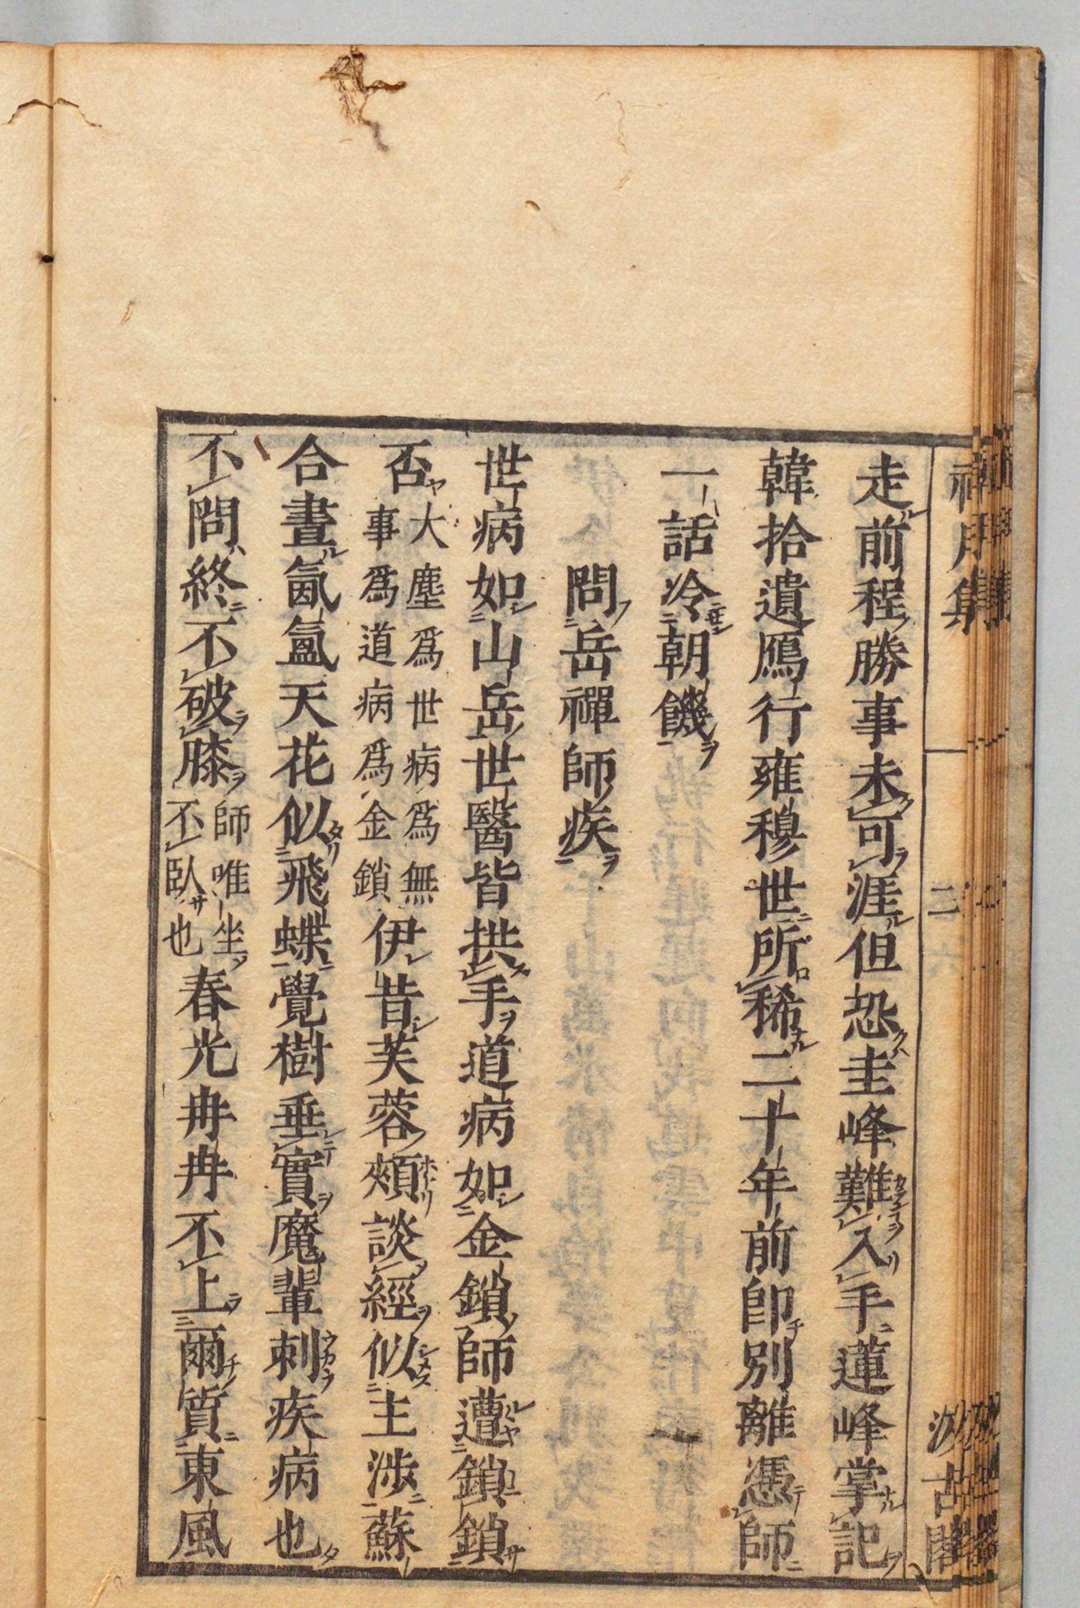 走前程勝事未可涯但恐圭峰難入手蓮峰掌記
韓拾遺鴈行雍穆世所稀二十年前卽別離憑師
一話冷朝饑
問岳禪師疾
世病如山岳世醫皆拱手道病如金鎖師遭鎖鎖
否大塵爲世病爲無事爲道病爲金鎖伊昔芙蓉頰談經似主涉蘇
合晝氤氳天花似飛蝶覺樹垂實魔輩刺疾病也
不問終不破膝師唯坐不臥也春光冉冉不上爾質東風